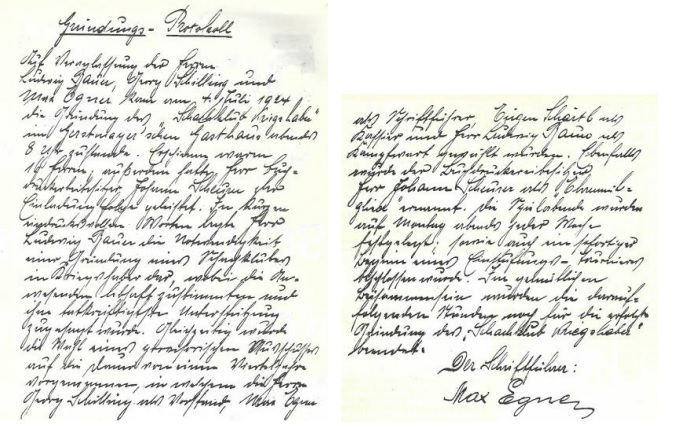 Gründungs-Protokoll
Auf Veranlassung der Herrn
Ludwig Bauer, Georg Schilling und
Max Egner kam am 4. Juli 1924
die Gründung des "Schachklub Kriegshaber"
im Gerstmayer'schen Gasthaus abends
8 Uhr zustande. Erschienen waren
Herrn außerdem hatte Herr Buch-
druckereibesitzer Johann der
Einladung Folge geleistet. In kurzen
eindrucksvollen Worten legte Herr
Ludwig Bauer die Notwendigkeit
einer Gründung eines Schachklubes
in Kriegshaber dar, wobei die An-
wesenden lebhaft zustimmten und
ihre tatkräftigste Unterstützung
zugesagt wurde. Gleichzeitig wurde
die Wahl eines Ausschusses
auf die Dauer von einem Vierteljahre
vorgenommen, in welchem die Herrn
Georg Schilling als Vorstand, Max Egner
als Schriftführer, Eugen als
Kassier und Herr Ludwig Bauer als
Kampfwart gewählt wurden. Ebenfalls
wurde der Buchdruckereibesitzer
Herr Johann als "Ehrenmit-
glied" ernannt. Die Spielabende wurden
auf Montag abends jeder Woche
festgelegt; sowie auch ein sofortiger
Beginn eines Einstufungs-Turnieres
beschlossen wurde. Im gemütlichen
Beisammensein wurden die darauf-
folgenden Stunden noch für die erfolgte
Gründung des "Schachklub Kriegshaber"
beendet.
Der Schriftführer:
Max Egner